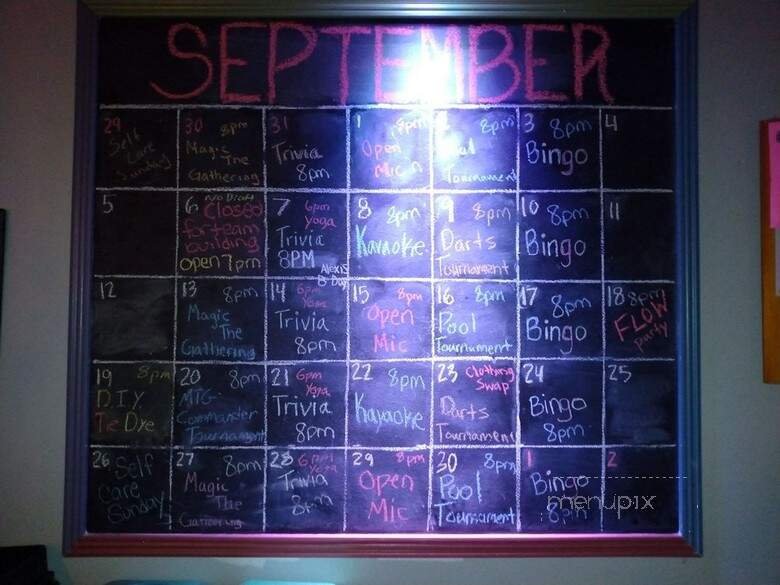 SEPTEMBER
29
Self
Care
Sunday
30 8pm
Magic
The
Gathering
31
Trivia
8pm
1 8pm
Open
Mic
8pm
Tournament
3 8pm
Bingo
4
5
6 No Draft
Closed
for team
building
Open 7pm
7 6pm
Yoga
Trivia
8PM
Alexis
B-Day
8 8pm
Karaoke
9 8pm
Darts
Tournament
10 8pm
Bingo
11
12
13 8pm
Magic
The
Gathering
14 6pm
Yoga
Trivia
8pm
15 8pm
Open
Mic
16 8pm
Pool
Tournament
17 8pm
Bingo
18 8pm
FLOW
party
19 8pm
D.I.Y.
Tie Dye
20 8pm
MTG-
Commander
Tournament
21 6pm
Yoga
Trivia
8pm
22 8pm
Karaoke
23 Clothing
Swap
Darts
Tournament
24
Bingo
8pm
25
26 Self
Care
Sunday
27 8pm
Magic
The
Gathering
28 6pm
Yoga
Trivia
8pm
29 8pm
Open
Mic
30 8pm
Pool
Tournament
1
Bingo
8pm
2
menupix